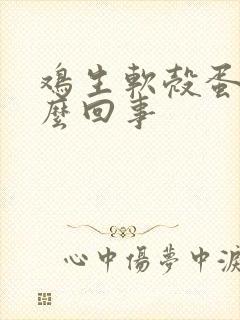 鸡生軟殼蛋
麼回事
心中傷夢中淚